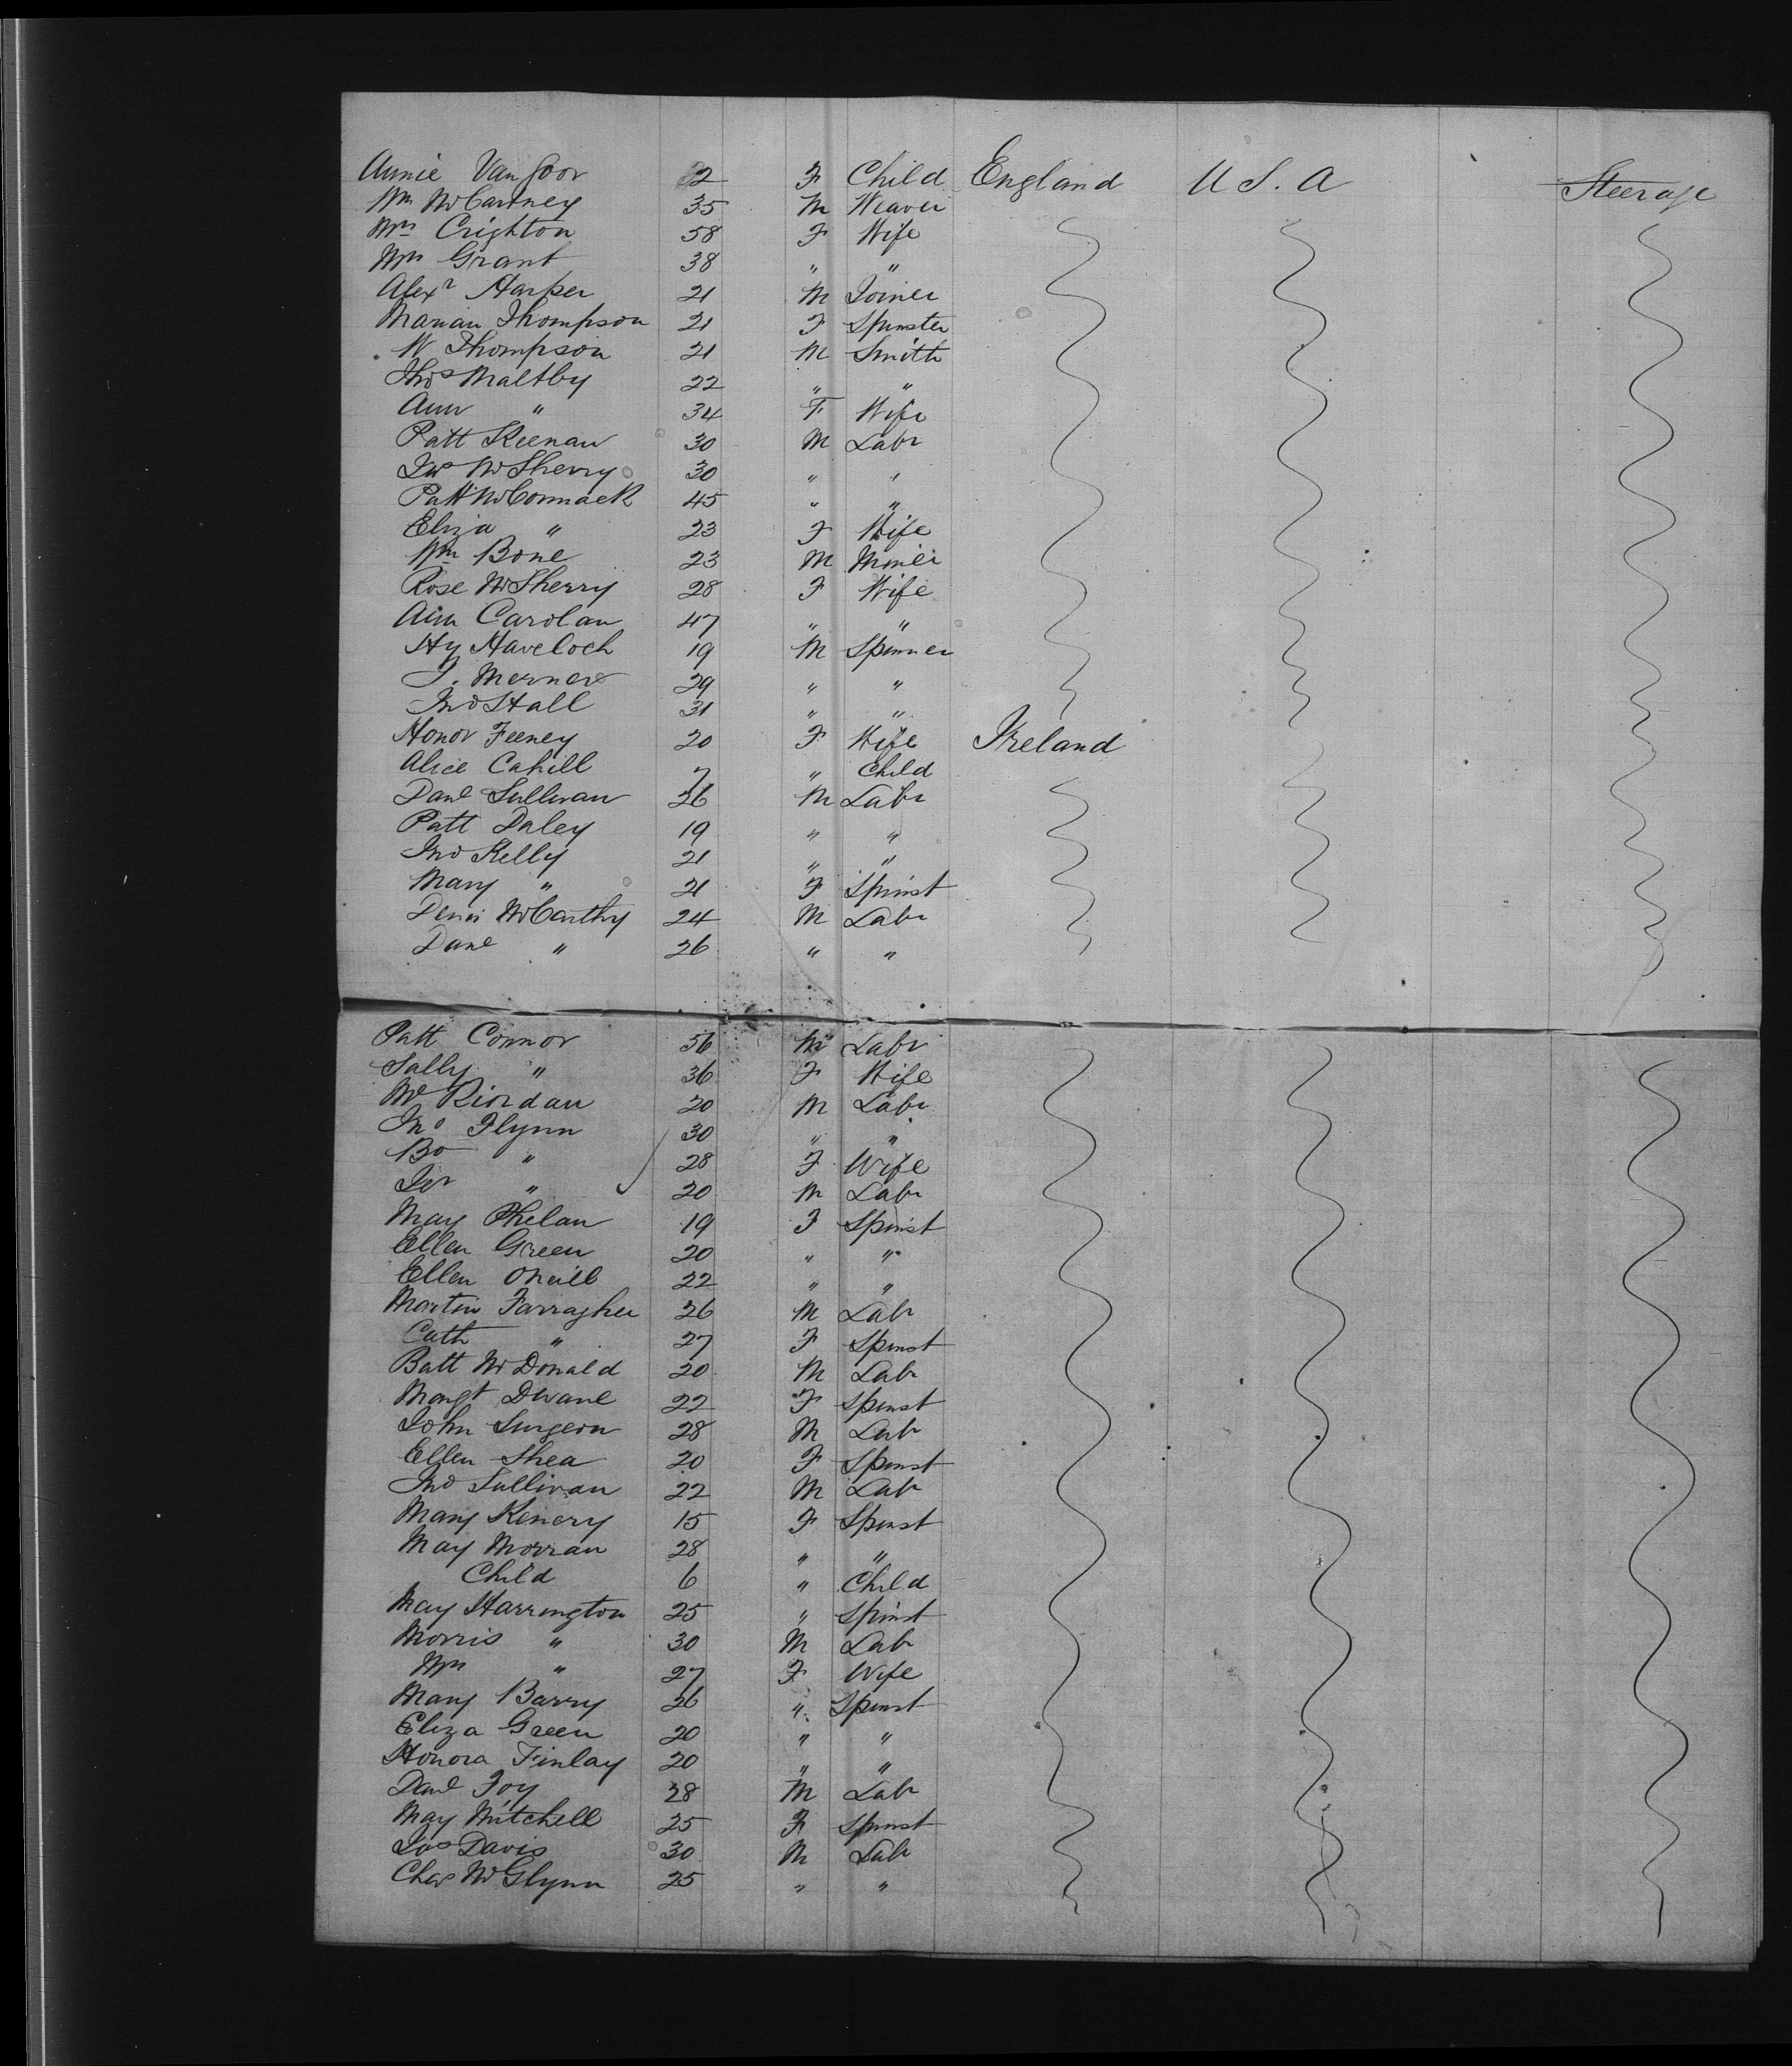 Annie Van Goor 2 F Child England U S. A Steerage
Wm McCartney 35 M Weaver
Mrs Crighton 58 F Wife
Mrs Grant 38 " "
Alexr Harper 21 M Joiner
Marian Thompson 21 F Spinster
W Thompson 21 M Smith
Thos Maltby 22 " "
Ann " 34 F Wife
Patt Keenan 30 M Labr
Jas McSherry 30 " "
Patt McCormack 45 " "
Eliza " 23 F Wife
Wm Bone 23 M Miner
Rose McSherry 28 F Wife
Ann Carolan 47 " "
Hy Haveloch 19 M Spinner
J. Merner 29 " "
Jno Hall 31 " "
Honor Feeney 20 F Wife Ireland
Alice Cahill 7 " Child
Danl Sullivan 26 M Labr
Patt Daley 19 " "
Jno Kelly 21 " "
Mary " 21 F Spinst
Denis McCarthy 24 M Labr
Danl " 26 " "
Patt Connor 56 M Labr
Sally " 36 F Wife
Riordan 20 M Labr
Jno Flynn 30 " "
" 28 F Wife
Jer " 20 M Labr
May Phelan 19 F Spinst
Ellen Green 20 " "
Ellen ONeill 22 " "
Martin Farragher 26 M Labr
Cath " 27 F Spinst
Batt McDonald 20 M Labr
Margt Dwane 22 F Spinst
John Surgeon 28 M Labr
Ellen Shea 20 F Spinst
Jno Sullivan 22 M Labr
Mary Kenery 15 F Spinst
May Morran 28 " "
Child 6 " Child
May Harrington 25 " Spinst
Morris " 30 M Labr
Mrs " 27 F Wife
Mary Barry 26 " Spinst
Eliza Green 20 " "
Honora Finlay 20 " "
Danl Foy 28 M Labr
May Mitchell 25 F Spinst
Jas Davis 30 M Labr
Chas McGlynn 25 " "